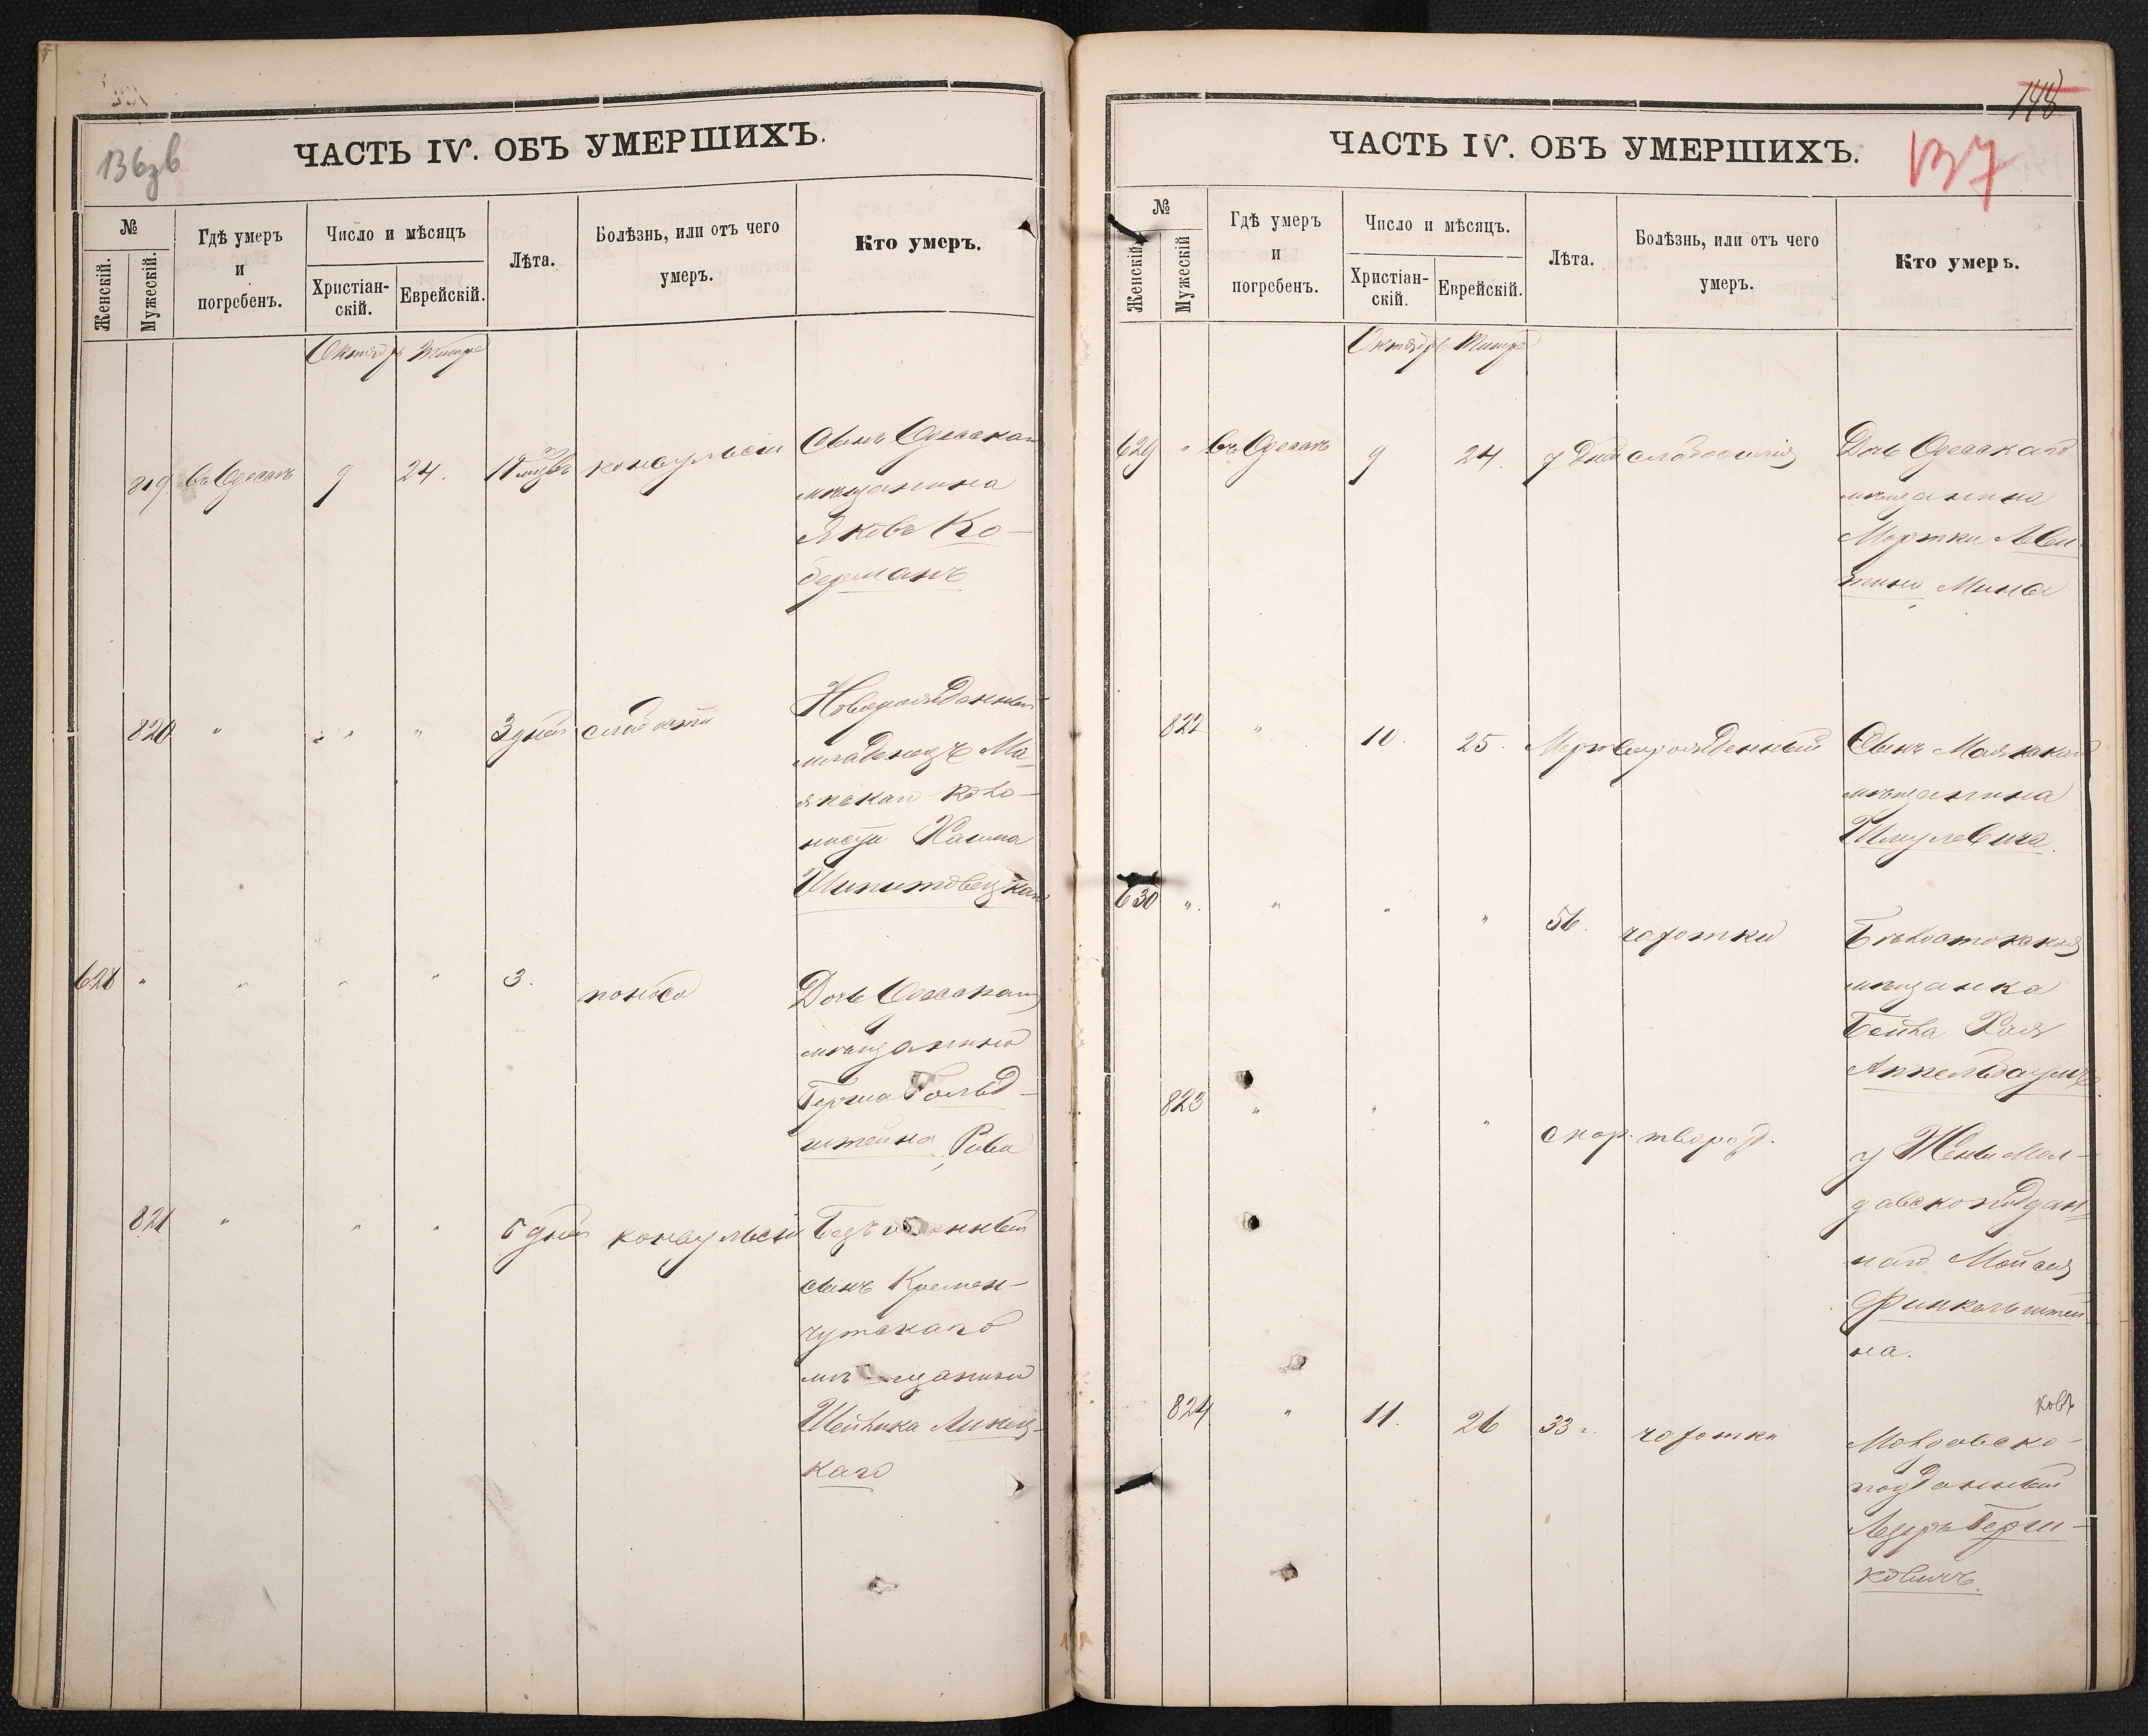 136зв
ЧАСТЬ IV. ОБЪ УМЕРШИХЪ.
№
Женскій.
Мужескій.
Гдѣ умеръ
и
погребенъ.
Число и мѣсяцъ
Христіан-
скій.
Еврейскій.
Лѣта.
Болѣзнь, или отъ чего
умеръ.
Кто умеръ.
Октябрь Тишре
819 въ Одессѣ 9 24. конвульсіи Сынъ Одесскаго
мѣщанина
Яковъ Ко-
берманъ
820 " " " " 3 дней слабости Новорожденный
младенецъ Ма-
якскаго коло-
ниста Хаима
Шипитовецкаго
628 " " " " 3. поноса Дочь Одесскаго
мѣщанина
Герша Гольд-
штейна Рива
821 " " " 5 дней конвульсіи
сынъ Кремен-
чугскаго
мѣщанина
Шейлика Липец-
каго
148
137
ЧАСТЬ IV. ОБЪ УМЕРШИХЪ.
№
Женскій.
Мужескій
Гдѣ умеръ
и
погребенъ.
Число и мѣсяцъ.
Христіан-
скій.
Еврейскій.
Лѣта.
Болѣзнь, или отъ чего
умеръ.
Кто умеръ.
Октябрь Тишре
629 " въ Одессѣ 9 24. 7 дней слабосилія Дочь Одесскаго
мѣщанина
Мортки Леви-
тина Мина
822 " 10. 25. Мертворожденный Сынъ Маякскаго
мѣщанина
Шмулевича.
630 " " " " 56. чахотки Бѣлостокская
мѣщанка
Бейла Хая
Аппельбаумъ.
823 " " " скор. твор. у Жены Мол-
давскоподдан-
наго Мойсея
Финкельштей-
на.
824 " 11. 26 33 г. чахотки
ковъ
Молдавско-
подданный
Лезеръ Берш-
ковичъ.